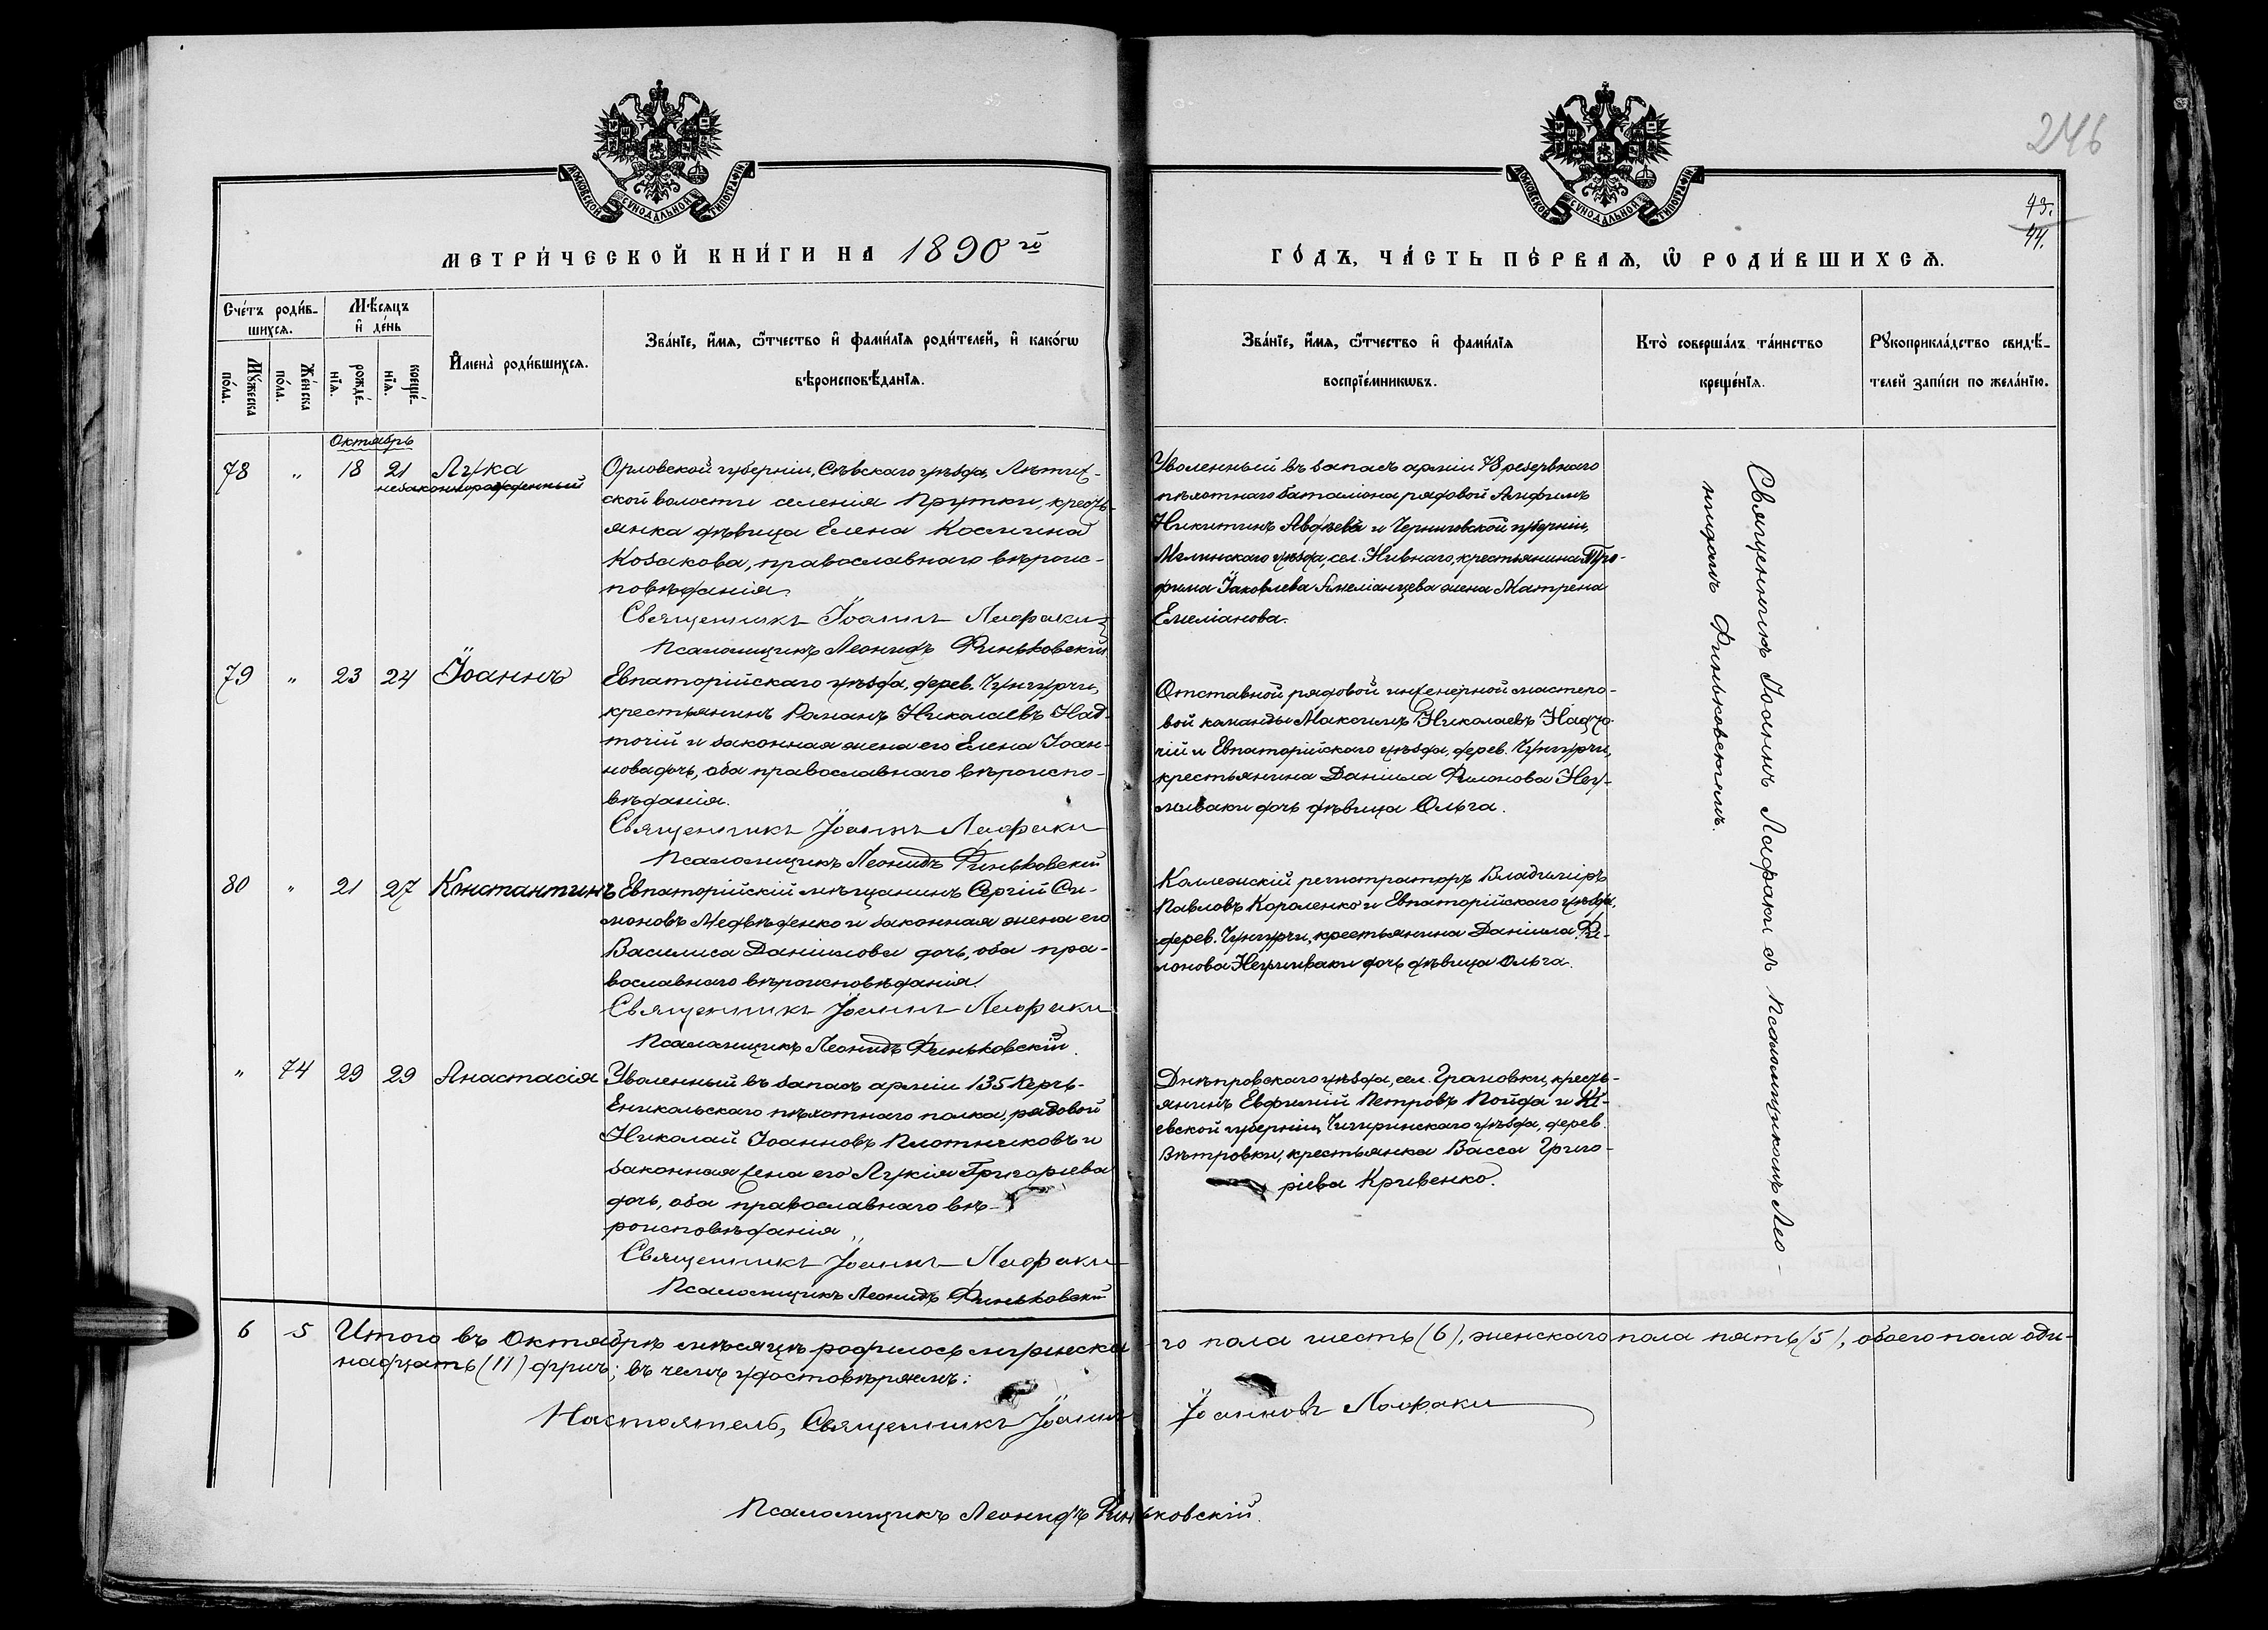 246
43.
44.
МОСКОВСКОЙ СѴНОДАЛЬНОЙ ТИПОГРАФІИ
МОСКОВСКОЙ СѴНОДАЛЬНОЙ ТИПОГРАФІИ
МЕТРИ́ЧЕСКОЙ КНИ́ГИ НА 1890 го
ГО́ДЪ, ЧА́СТЬ ПЕ́РВАЯ, Ѡ РОДИ́ВШИХСЯ.
Сче́тъ роди́в-
шихся.
Мѣ́сяцъ
и де́нь
Мꙋ́жеска
по́ла.
Же́нска
по́ла.
рожде́-
нїя.
креще́-
нїя.
Имена̀ роди́вшихся.
Зва́нїе, и́мя, ѻ҆́тчество и фами́лїя роди́телей, и како́гѡ
вѣроисповѣ́данїя.
Зва́нїе, и́мя, ѻ҆́тчество и фами́лїя
воспрїе́мникѡвъ.
Кто̀ соверша́лъ та́инство
креще́нїя.
Рꙋкоприкла́дство свидѣ́-
телей за́писи по жела́нїю.
Октябрь
78 „ 18 21 Лука
незаконнорожденный
Орловской губерніи, Сѣвскаго уѣзда,
ской волости селенія Прутки, кресть-
янка дѣвица Елена Космина
Козакова, православнаго вѣроис-
повѣданія.
Священникъ Іоаннъ Лаофаки
Псаломщикъ Леонидъ Финьковскій
Уволенный въ запасъ арміи 78 резервнаго
пѣхотнаго баталіона рядовой Анфимъ
Никитинъ Авдѣевъ и Черниговской губерніи,
Мглинскаго уѣзда, сел. Нивнаго, крестьянина Тро-
фима Іаковлева Емеліанцева жена Матрена
Емеліанова.
79 „ 23 24 Іоаннъ
Евпаторійскаго уѣзда, дерев.
крестьянинъ Романъ Николаевъ Над-
точій и законная жена его Елена Іоан-
нова дочь, оба православнаго вѣроиспо-
вѣданія.
Священникъ Іоаннъ Лаофаки
Псаломщикъ Леонидъ Финьковскій
Отставной рядовой инженерной мастеро-
вой команды Максимъ Николаевъ Надто-
чій и Евпаторійскаго уѣзда, дерев.
крестьянина Даніила Филонова Неу-
мываки дочь дѣвица Ольга.
80 „ 21 27 Константинъ
Евпаторійскій мѣщанинъ Сергій Си-
моновъ Медвѣденко и законная жена его
Василиса Даніилова дочь, оба пра-
вославнаго вѣроисповѣданія.
Священникъ Іоаннъ Лаофаки
Псаломщикъ Леонидъ Финьковскій.
Коллежскій регистраторъ Владиміръ
Павловъ Короленко и Евпаторійскаго уѣзда,
дерев. крестьянина Даніила Фи-
лонова Неумываки дочь дѣвица Ольга.
„ 74 29 29 Анастасія
Уволенный въ запасъ арміи 135 Керчь-
Еникольскаго пѣхотнаго полка, рядовой
Николай Іоанновъ Плотниковъ и
законная жена его Лукія Григоріева
дочь, оба православнаго вѣ-
роисповѣданія
Священникъ Іоаннъ Лаофаки
Псаломщикъ Леонидъ Финьковскій
Днѣпровскаго уѣзда, сел. кресть-
янинъ Евфимій Петровъ Пойда и Кі-
евской губерніи, Чигиринскаго уѣзда, дерев.
Вѣтровки, крестьянка Васса Григо-
ріева Кривенко.
Священникъ Іоаннъ Лаофаки съ псаломщикомъ Лео-
нидомъ Финьковскимъ.
6 5 Итого въ Октябрѣ мѣсяцѣ родилось мужеска-го пола шесть (6), женскаго пола пять (5), обоего пола оди-
надцать (11) душъ; въ чемъ удостовѣряемъ:
Настоятель, Священникъ Іоаннъ Іоанновъ Лаофаки
Псаломщикъ Леонидъ Финьковскій.